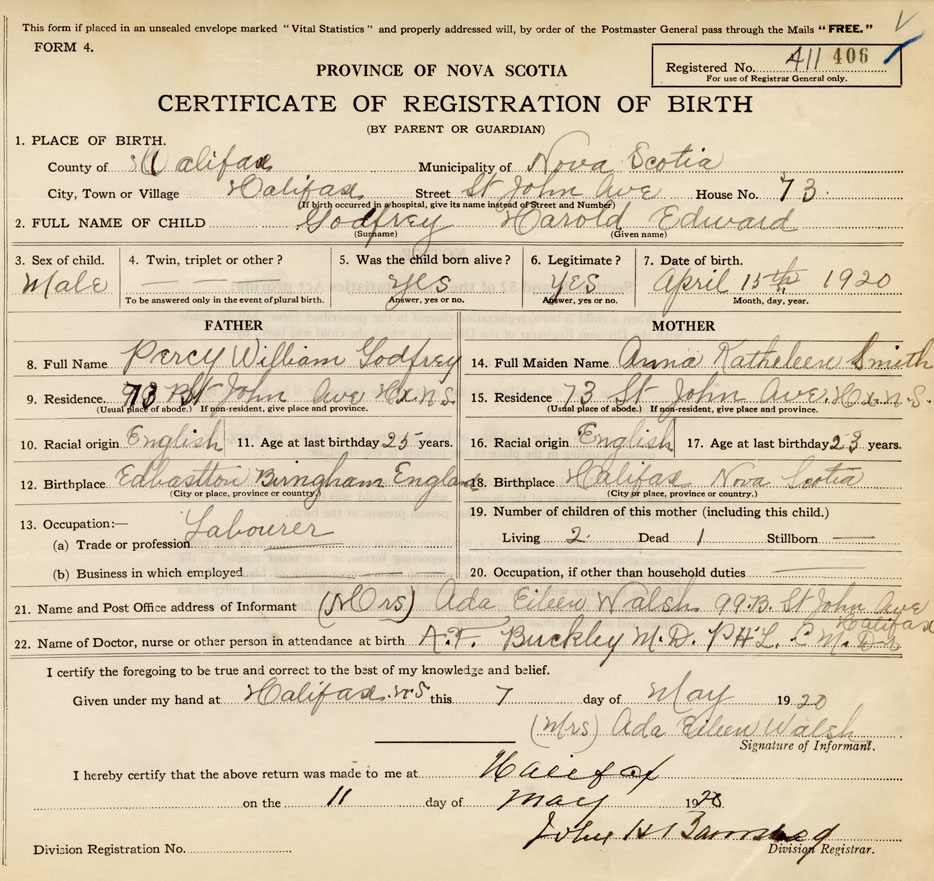 This form if placed in an unsealed envelope marked "Vital Statistics" and properly addressed will, by order of the Postmaster General pass through the Mails "FREE."
FORM 4.
Registered No. 411 406
For use of Registrar General only.
PROVINCE OF NOVA SCOTIA
CERTIFICATE OF REGISTRATION OF BIRTH
(BY PARENT OR GUARDIAN)
1. PLACE OF BIRTH.
County of Halifax Municipality of Nova Scotia
City, Town or Village Halifax Street St John Ave House No. 73
(If birth occurred in a hospital, give its name instead of Street and Number)
2. FULL NAME OF CHILD Godfrey Harold Edward
(Surname) (Given name)
3. Sex of child. 4. Twin, triplet or other? 5. Was the child born alive? 6. Legitimate? 7. Date of birth.
Male yes YES April 15th 1920
To be answered only in the event of plural birth. Answer, yes or no. Answer, yes or no. Month, day, year.
FATHER MOTHER
8. Full Name Percy William Godfrey 14. Full Maiden Name Anna Katheleen Smith
9. Residence 73 St John Ave Hx. N.S. 15. Residence 73 St John Ave. Hx. N.S.
(Usual place of abode.) If non-resident, give place and province. (Usual place of abode.) If non-resident, give place and province.
10. Racial origin English 11. Age at last birthday 25 years. 16. Racial origin English 17. Age at last birthday 23 years.
12. Birthplace Edbastton Birngham England 18. Birthplace Halifax Nova Scotia
(City or place, province or country.) (City or place, province or country.)
13. Occupation:— Labourer 19. Number of children of this mother (including this child.)
(a) Trade or profession Living 2 Dead 1 Stillborn —
(b) Business in which employed 20. Occupation, if other than household duties
21. Name and Post Office address of Informant (Mrs) Ada Eileen Walsh 99.B. St John Ave
Halifax
22. Name of Doctor, nurse or other person in attendance at birth A.F. Buckley M.D.
I certify the foregoing to be true and correct to the best of my knowledge and belief.
Given under my hand at Halifax. N.S this 7 day of May 1920
(Mrs) Ada Eileen Walsh
Signature of Informant.
I hereby certify that the above return was made to me at Halifax
on the 11 day of May 1920
John H
Division Registration No. Division Registrar.